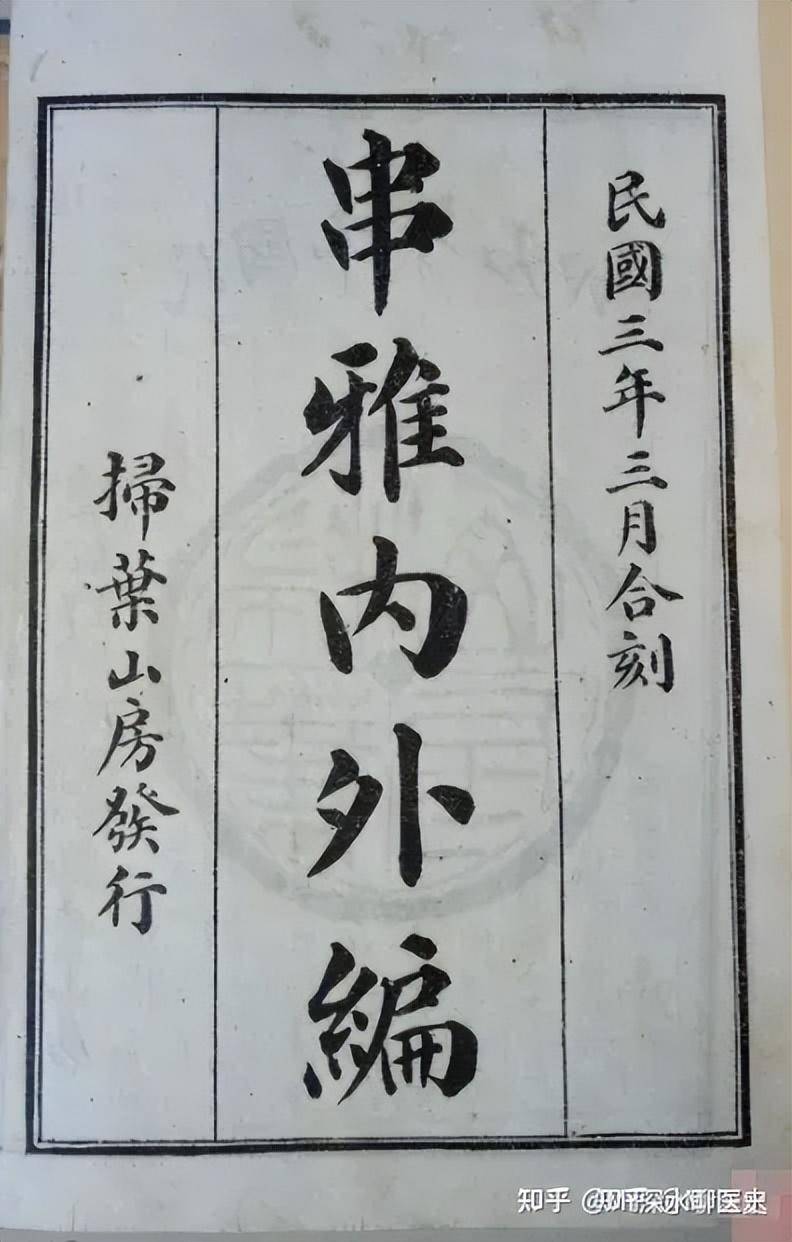 民國三年三月合刻
串雅內外編
掃葉山房發行
知乎